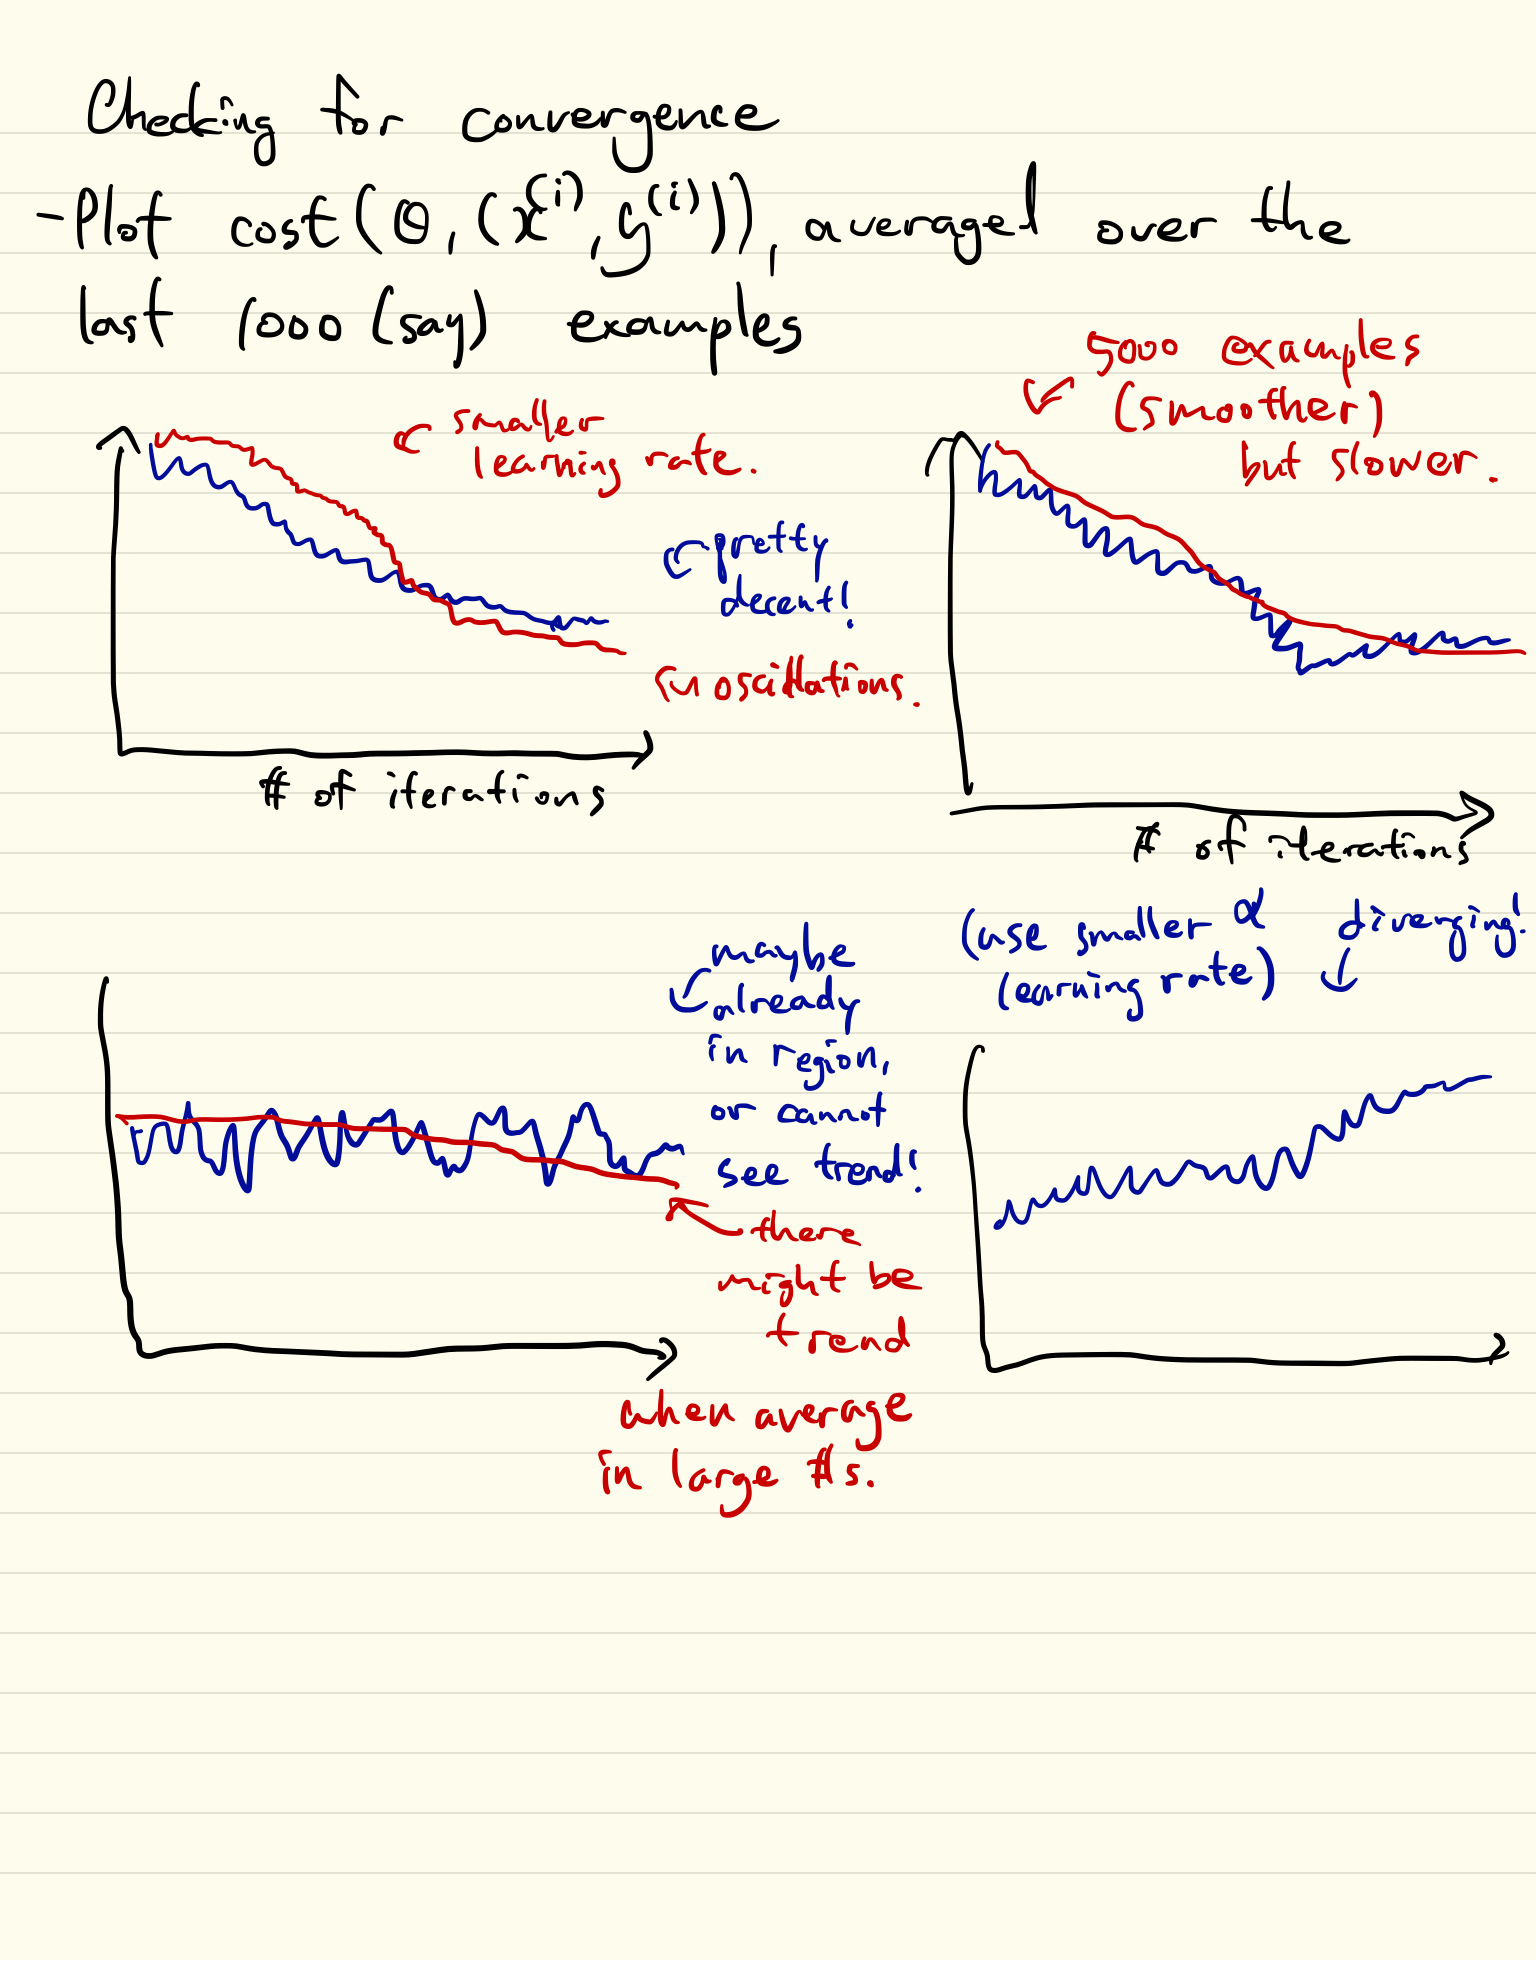 Checking for convergence
- Plot cost(θ, (x⁽ⁱ⁾, y⁽ⁱ⁾)), averaged over the
last 1000 (say) examples
smaller
learning rate.
pretty
decent!
oscillations.
# of iterations
5000 examples
(smoother)
but slower.
# of iterations
maybe
already
in region,
or cannot
see trend!
there
might be
trend
when average
in large #s.
(use smaller α
learning rate)
diverging!